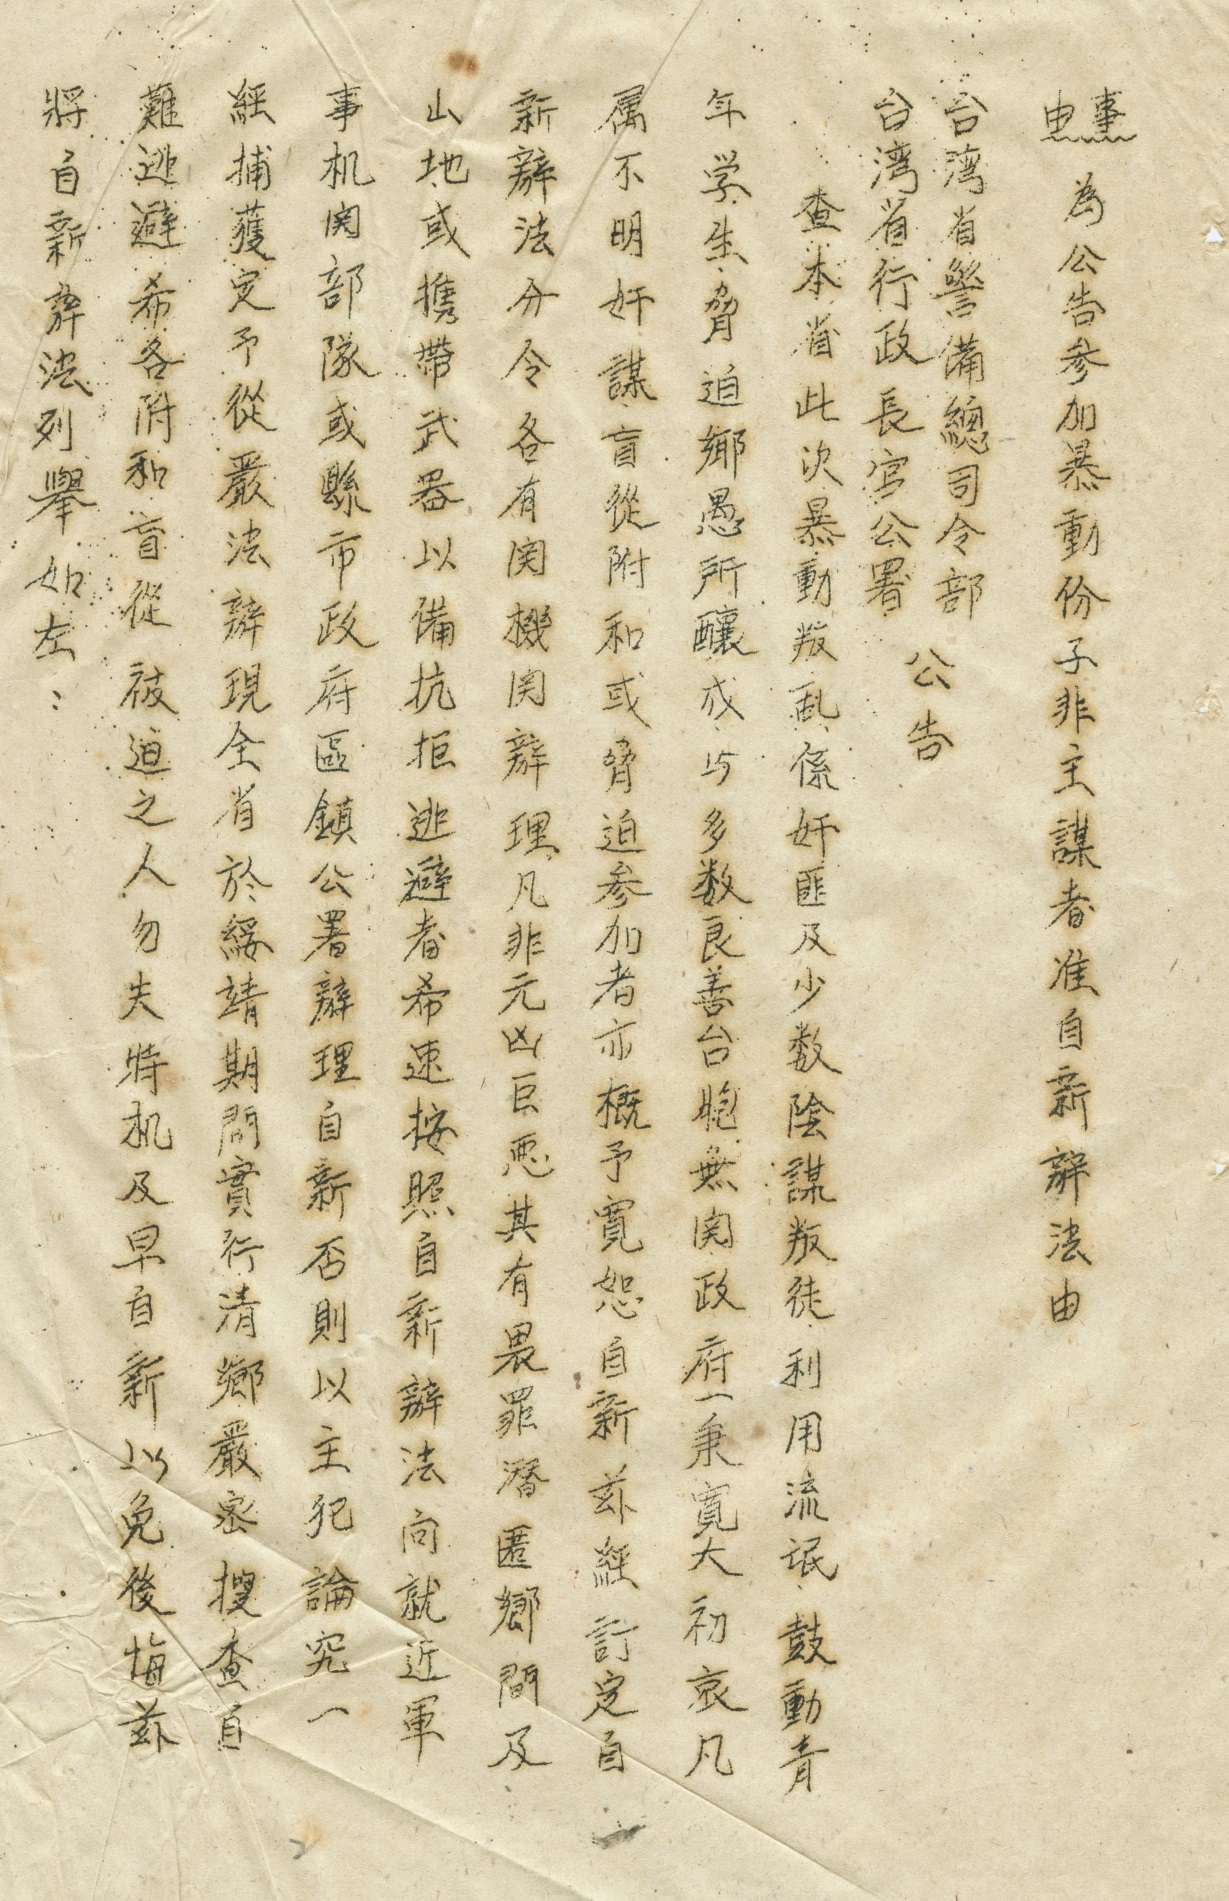 事由 為公告參加暴動份子非主謀者准自新辦法由
台湾省警備總司令部
台湾省行政長官公署
公告
查本省此次暴動叛乱係奸匪及少数陰謀叛徒利用流氓鼓動青
年学生脅迫鄉愚所釀成与多数良善台胞無関政府一秉寬大初衷凡
属不明奸謀盲從附和或脅迫参加者亦概予寬恕自新兹經訂定自
新辦法分令各有関機関辦理凡非元凶巨悪其有畏罪潛匿鄉間及
山地或携帶武器以備抗拒逃避者希速按照自新辦法向就近軍
事机関部隊或縣市政府區鎮公署辦理自新否則以主犯論究一
經捕獲定予從嚴法辦現全省於綏靖期間實行清鄉嚴密搜查自
難逃避希各附和盲從被迫之人勿失時机及早自新以免後悔兹
將自新辦法列舉如左：
2